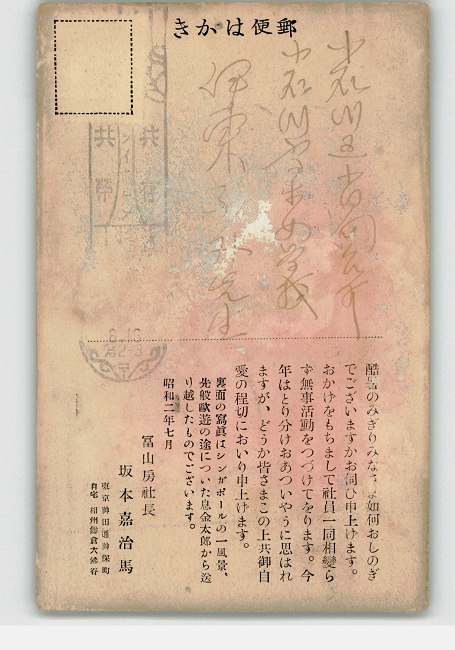 郵便はかき
小石川区
小石川
伊東
先生
共
共
酷暑のみぎりみな
如何おしのぎ
でございますかお伺ひ申上げます。
おかけをもちまして社員一同相變ら
ず無事活動をつづけてをります。今
年はとり分けおあついやうに思はれ
ますが、どうか皆さまこの上共御自
愛の程切においり申上げます。
裏面の寫眞はシンガポールの一風景、
先般歐遊の途についた息金太郎から送
り越したものでございます。
昭和二年七月
冨山房社長
坂本嘉治馬
東京神田通神保町
自宅 相州鎌倉大佛谷